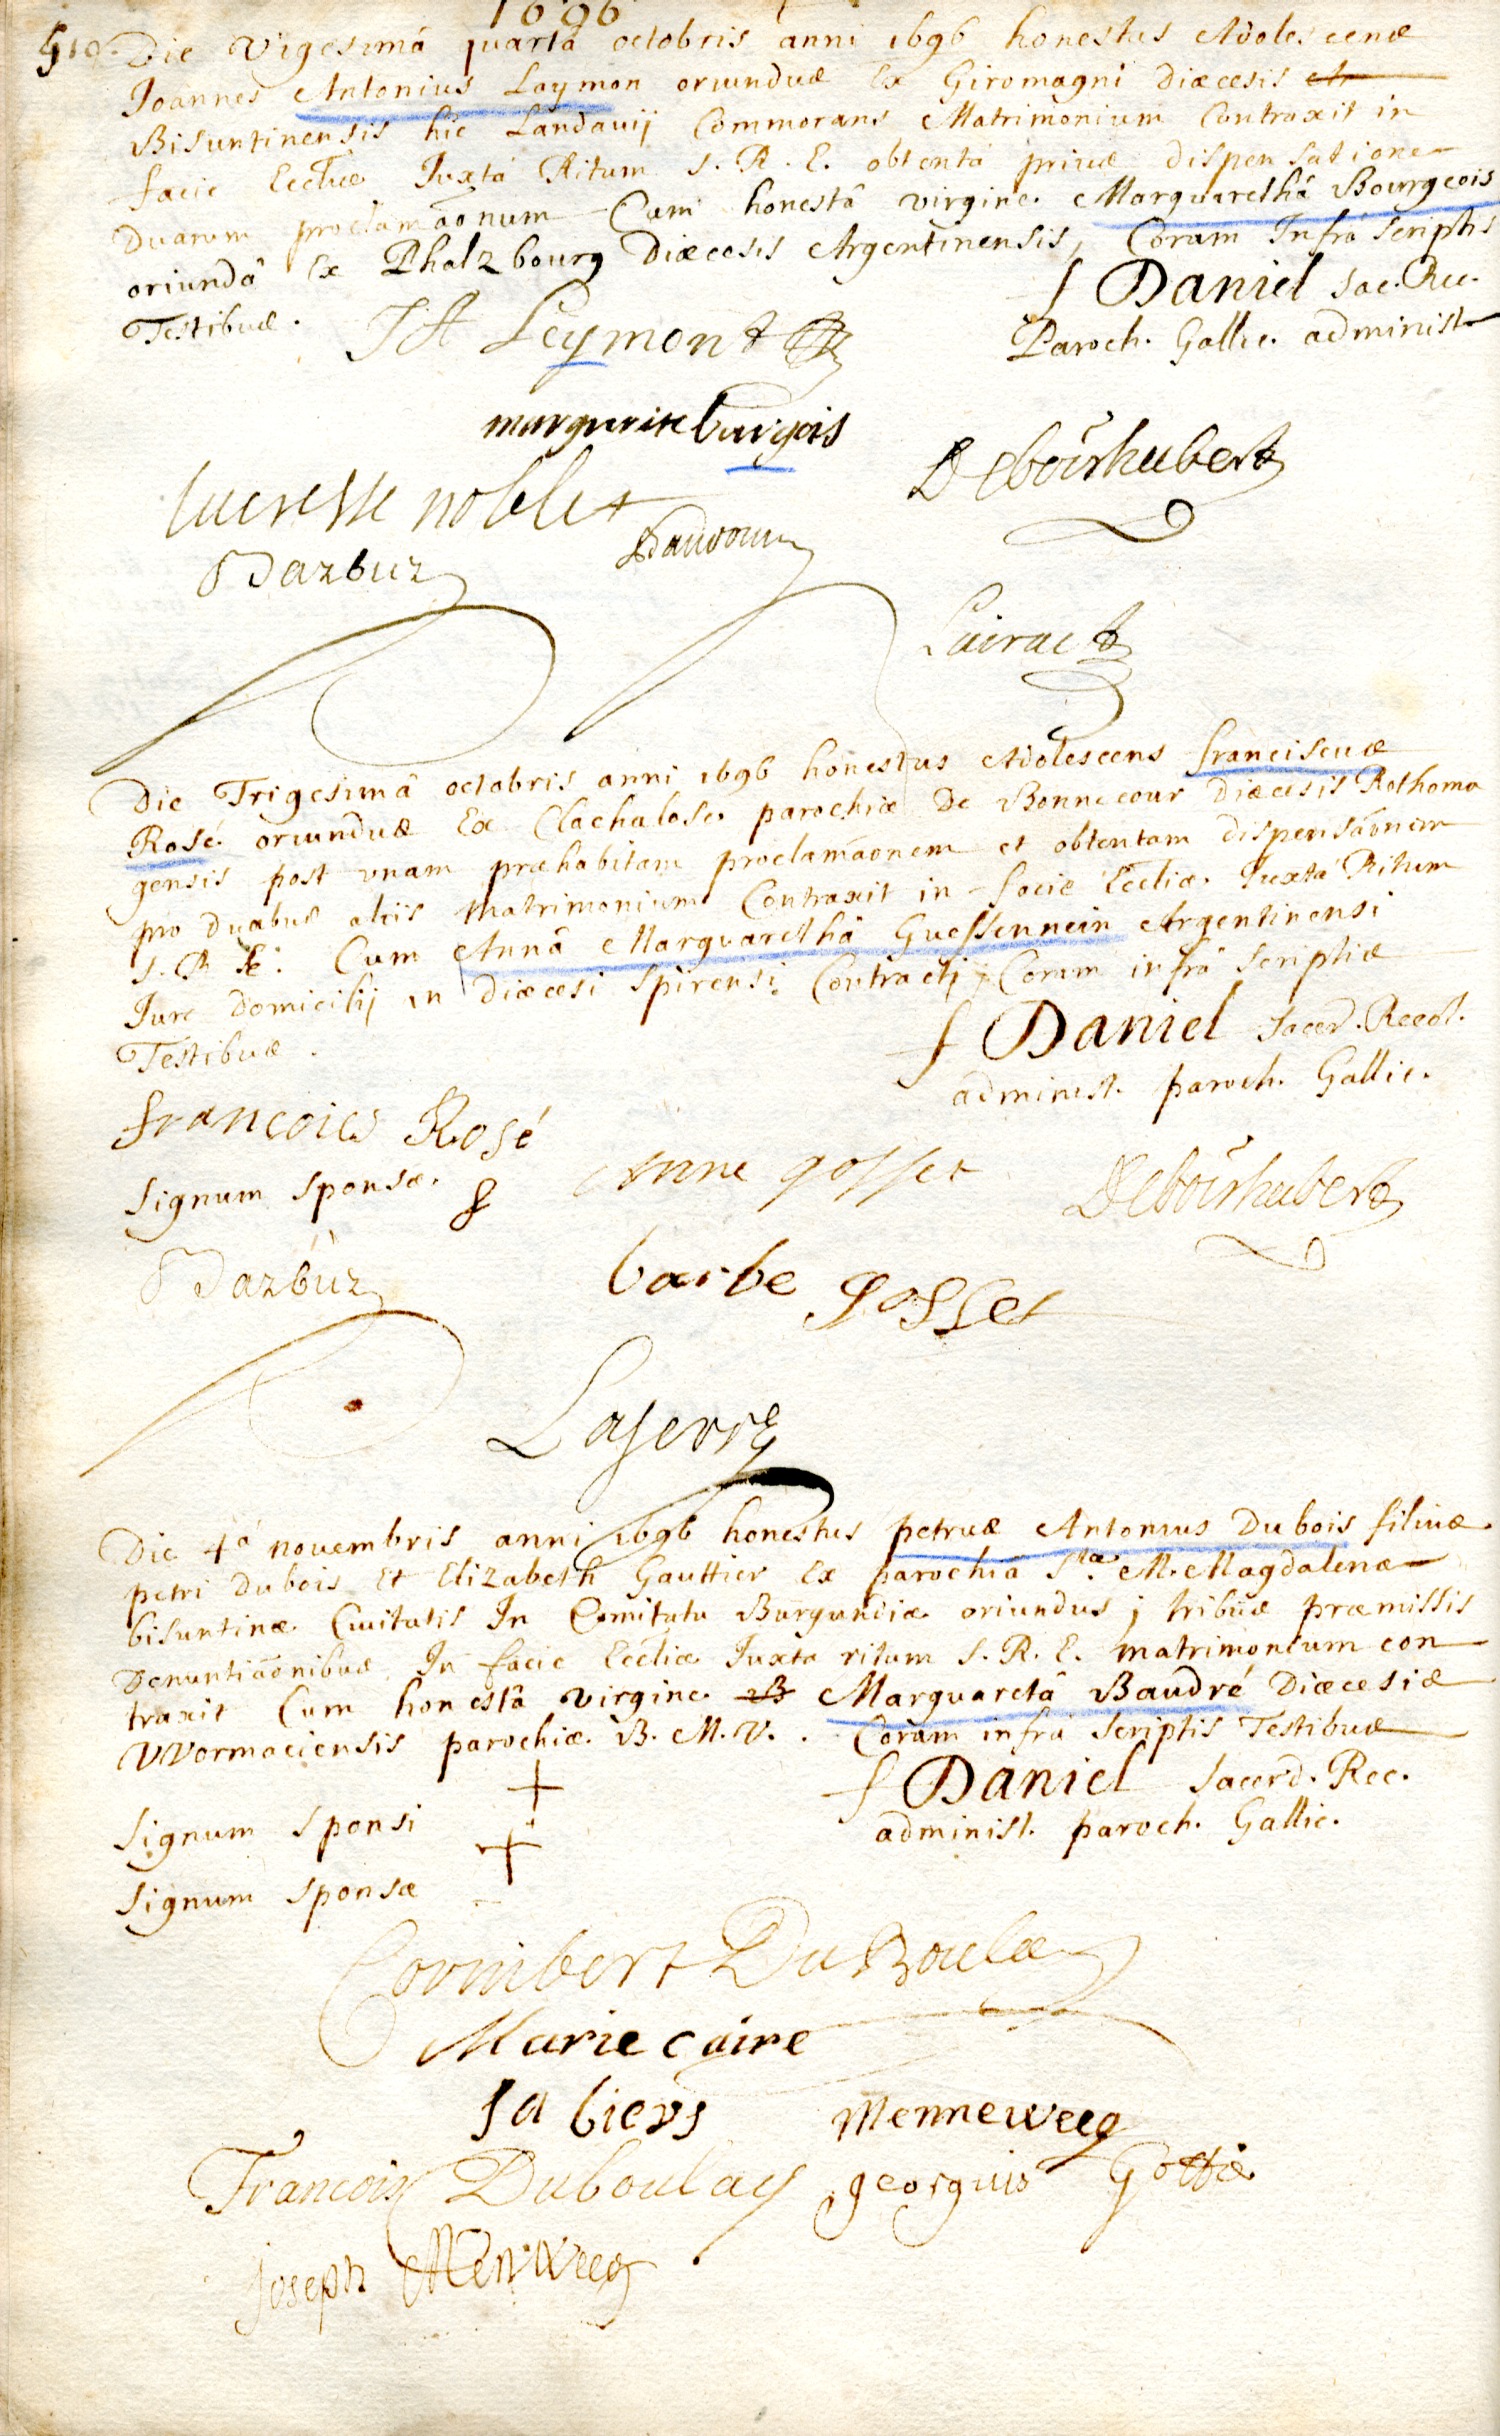 1696
510. Die Vigesimâ quartâ octobris anni 1696 honestus Adolescens
Joannes Antonius Laymon oriundus Ex Giromagni Diæcesis
Bisuntinensis hic Landavij Commorans Matrimonium Contraxit in
facie Eccliæ Juxtá Ritum S. R. E. obtentá prius dispensatione
duarum proclamãonum Cum honestâ virgine Marguarethâ Bourgeois
oriundâ Ex Phalzbourg Diæcesis Argentinensis, Coram Infrá scriptis
Testibus.
f Daniel Sac. Rec.
Paroch. Gallic. administ
JA Leymont
marguerite burgois
Deboishubert
lucresse noblet
Bazbuz
Lairac
Die Trigesimâ octobris anni 1696 honestus Adolescens franciscus
Rosé oriundus Ex Clachalose parochiæ De Bonnecour Diæcesis Rothoma
gensis post unam præhabitam proclamãonem et obtentam dispensãonem
pro duabus aliis Matrimonium Contraxit in facie Eccliæ Juxtá Ritum
S. R. E. Cum Annâ Marguarethâ Guessennein Argentinensi
Jure domicilij in diæcesi Spirensi Contracti, Coram infrá scriptis
Testibus.
f Daniel Sacerd. Recol.
administ. paroch. Gallic.
francoies Rosé
Signum sponsæ.
Anne gosset
Deboishubert
Bazbuz
barbe gosset
Laserre
Die 4á novembris anni 1696 honestus petrus Antonius Dubois filius
petri Dubois Et Elizabeth Gauttier Ex parochiâ Stæ M. Magdalenæ
bisuntinæ Civitatis In Comitatu Burgundiæ oriundus; tribus præmissis
Denuntiãonibus In facie Eccliæ Juxta ritum S. R. E. matrimonium con
traxit Cum honestâ virgine Marguaretâ Baudré Diæcesis
VVormaciensis parochiæ B. M. V. Coram infrá scriptis Testibus
f Daniel Sacerd. Rec.
administ. paroch. Gallic.
Signum sponsi +
Signum sponsæ +
Marie caire
Menneweeg
Francois Duboulay georguis
Joseph Menweeg